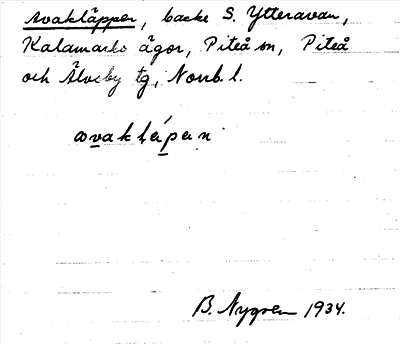 Avakläppen, backe S. Ytteravan,
Kalamarks ägor, Piteå sn, Piteå
och Älvsby tg, Norrb. l.
avaklepen
B. Nygren 1934.